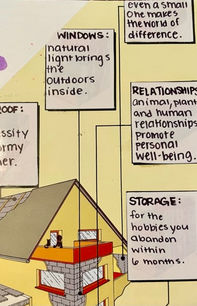 even a small
one makes
the world of
difference.
WINDOWS:
natural
light brings
the
outdoors
inside.
RELATIONSHIPS
animal, plant
and human
relationships
promote
personal
well-being.
ROOF:
ssity
ormy
her.
STORAGE:
for the
hobbies you
abandon
within
6 months.